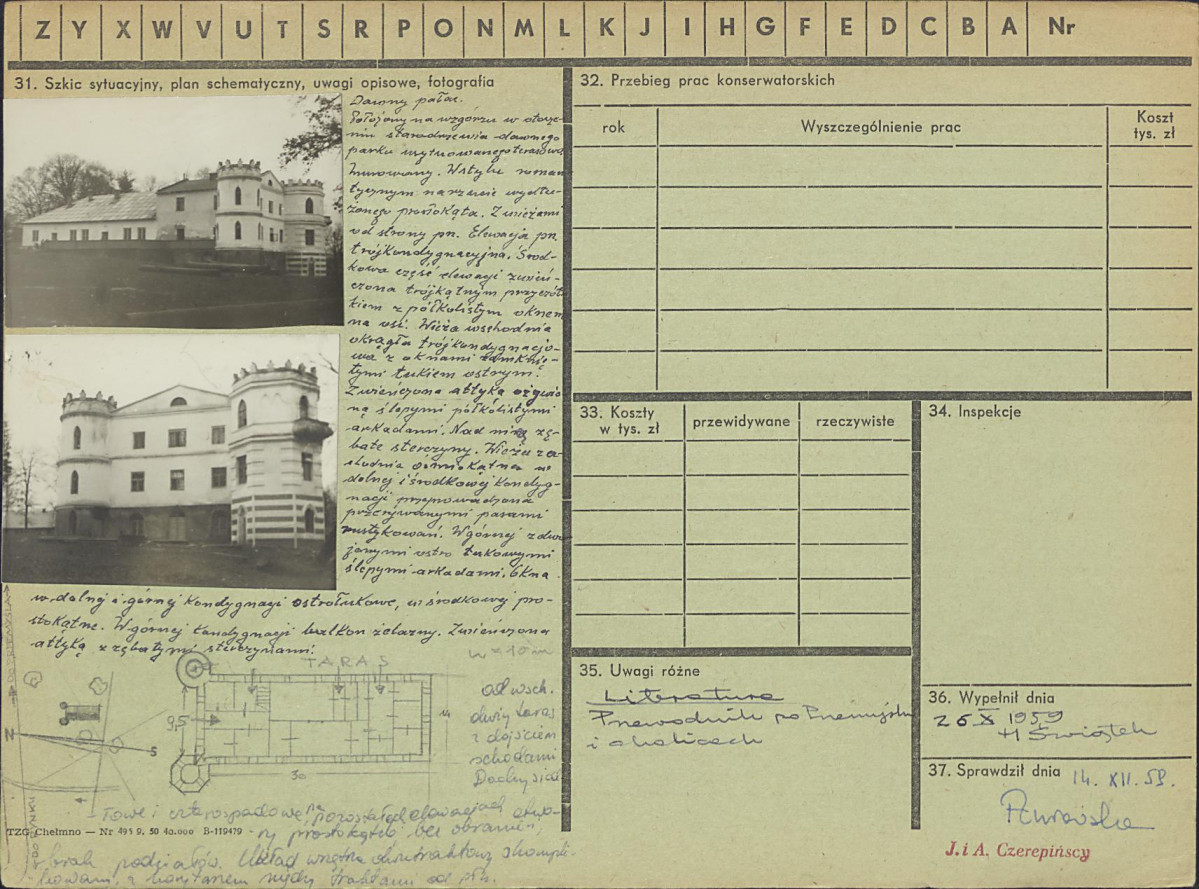 Z Y X W V U T S R P O N M L K J I H G F E D C B A Nr
31. Szkic sytuacyjny, plan schematyczny, uwagi opisowe, fotografia
Dawny pałac.
Położony na wzgórzu w otocze-
niu starodrzewia dawnego
parku usytuowanego tarasowo
Murowany. W stylu roman
tycznym na rzucie wydłu-
żonego prostokąta. Z wieżami
od strony pn. Elewacja pn.
trójkondygnacyjna. Środ-
kowa część elewacji zwień-
czona trójkątnym przyczół
kiem z półkolistym oknem
na osi. Wieża wschodnia
okrągła trójkondygnacjo-
wa z oknami zamknię-
tymi łukiem ostrym.
Zwieńczona attyką ożywio
ną ślepymi półkolistymi
arkadami. Nad nią zę-
bate sterczyny. Wieża za-
chodnia ośmiokątna w
dolnej i środkowej kondyg-
nacji przeprowadzona
przerywanymi pasami
rustykowań. W górnej zdwo
jonymi ostro łukowymi
ślepymi arkadami. Okna
w dolnej i górnej kondygnacji ostrołukowe, w środkowej pro-
stokątne. W górnej kondygnacji balkon żelazny. Zwieńczona
attyką z zębatymi sterczynami.
TARAS
od wsch.
duży taras
z dojściem
schodami
Dachy siod
9,5
14
30
N
S
łowe i czterospadowe, na pozostałych elewacjach otwo-
ry prostokątne bez obramień,
brak podziałów. Układ wnętrz dwutraktowy skompli-
kowany, z korytarzem między traktami od płn.
TZG Chełmno — Nr 491 9. 50 40.000 B-119479
32. Przebieg prac konserwatorskich
rok Wyszczególnienie prac Koszt tys. zł
33. Koszty w tys. zł przewidywane rzeczywiste
34. Inspekcje
35. Uwagi różne
Literatura
Przewodnik po Przemyślu
i okolicach
36. Wypełnił dnia
26 X 1959
H Świątek
37. Sprawdził dnia 14. XII. 59.
J. i A. Czerepińscy